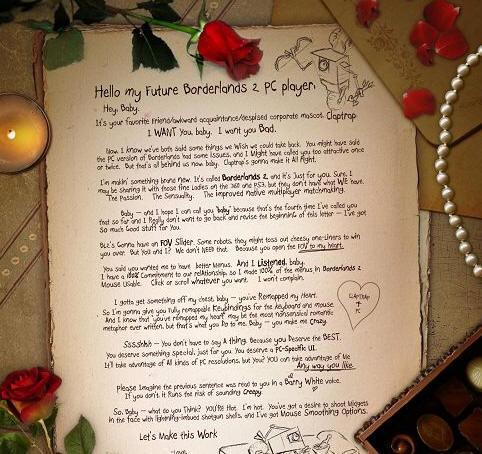 Hello my Future Borderlands 2 PC player,
Hey, Baby.
It's your favorite Friend/awkward acquaintance/despised corporate mascot, Claptrap
I WANT You, baby. I want you Bad.
Now, I know we've both said some things we Wish we could take back. You might have said
the PC version of Borderlands had some issues, and I Might have called you too attractive once
or twice. But that's all behind us now, baby. Claptrap's gonna make it All Right.
I'm makin' something brand new. It's called Borderlands 2, and it's Just for you. Sure, I
may be sharing it with those fine Ladies on the 360 and PS3, but they don't have what WE have.
The Passion. The Sensuality. The improved native multiplayer matchmaking.
Baby — and I hope I can call you 'baby' because that's the fourth time I've called you
that so far and I Really don't want to go back and revise the beginning of this letter — I've got
so Much Good Stuff for You.
BL2's Gonna have an FOV Slider. Some robots, they might toss out cheesy one-liners to win
you over. But You and I? We don't NEED that. Because you open the FOV to my heart.
You said you wanted me to have better Menus. And I Listened, baby.
I have a 100% Commitment to our relationship, so I made 100% of the menus in Borderlands 2
Mouse Usable. Click or scroll whatever you want. I won't complain.
I gotta get something off my chest, baby — you've Remapped my Heart.
So I'm gonna give you fully remappable Keybindings for the keyboard and mouse.
And I know that 'you've remapped my heart' may be the most nonsensical romantic
metaphor ever written, but that's what you Do to me, Baby — you make me Crazy.
CLAPTRAP
+
PC
Sssshhh — You don't have to Say A thing. Because you Deserve the BEST.
You deserve something special, Just for you. You deserve a PC-Specific UI.
It'll take advantage of All kinds of PC resolutions, but You? YOU can take advantage of Me
Any way you like.
Please imagine the previous sentence was read to you in a Barry White voice.
If you don't, it Runs the risk of sounding Creepy.
So, Baby — what do you Think? YOU'RE Hot. I'm hot. You've got a desire to shoot Midgets
in the face with lightning-imbued shotgun shells, and I've Got Mouse Smoothing Options.
Let's Make this Work